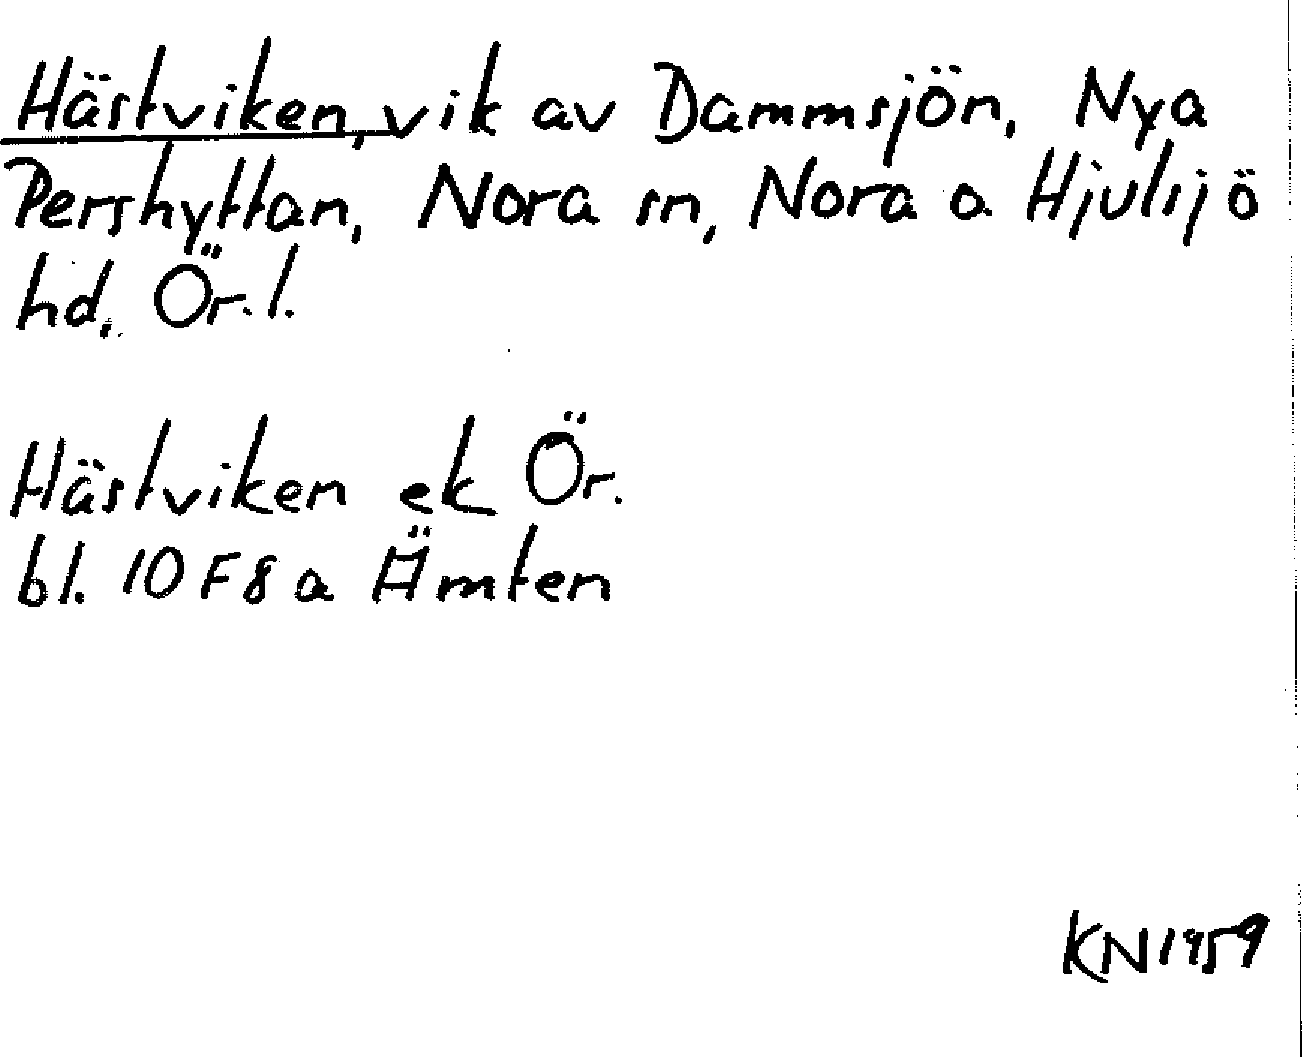 Hästviken, vik av Dammsjön, Nya
Pershyttan, Nora sn, Nora o Hjulsjö
hd, Ör. l.
Hästviken ek Ör.
bl. 10 F 8 a Ämten
KN 1959